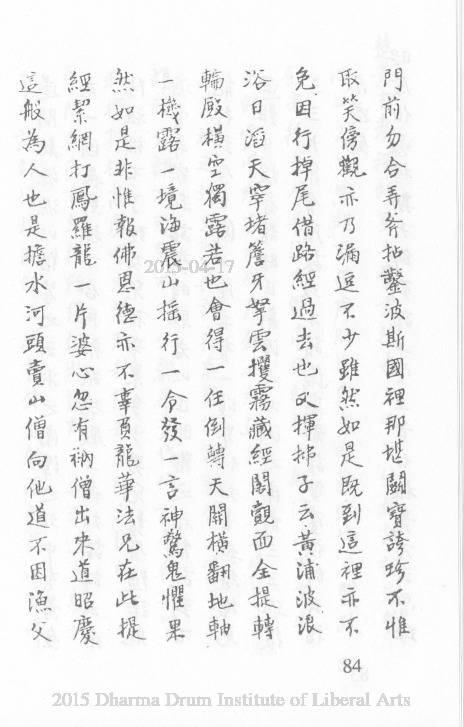 門前勿合弄斧拈鑿波斯國裡那堪鬪寶誇珍不惟
取笑傍觀亦乃漏逗不少雖然如是既到這裡亦不
免因行掉尾借路經過去也又揮拂子云黃浦波浪
浴日滔天窣堵簷牙拏雲攫霧藏經閣覿面全提轉
輪殿橫空獨露若也會得一任倒轉天關橫翻地軸
一機露一境海震山搖行一令發一言神驚鬼懼果
然如是非惟報佛恩德亦不辜負龍華法兄在此提
經絜網打鳳羅龍一片婆心忽有衲僧出來道昭慶
這般為人也是擔水河頭賣山僧向他道不因漁父
84
2015-04-17
2015 Dharma Drum Institute of Liberal Arts